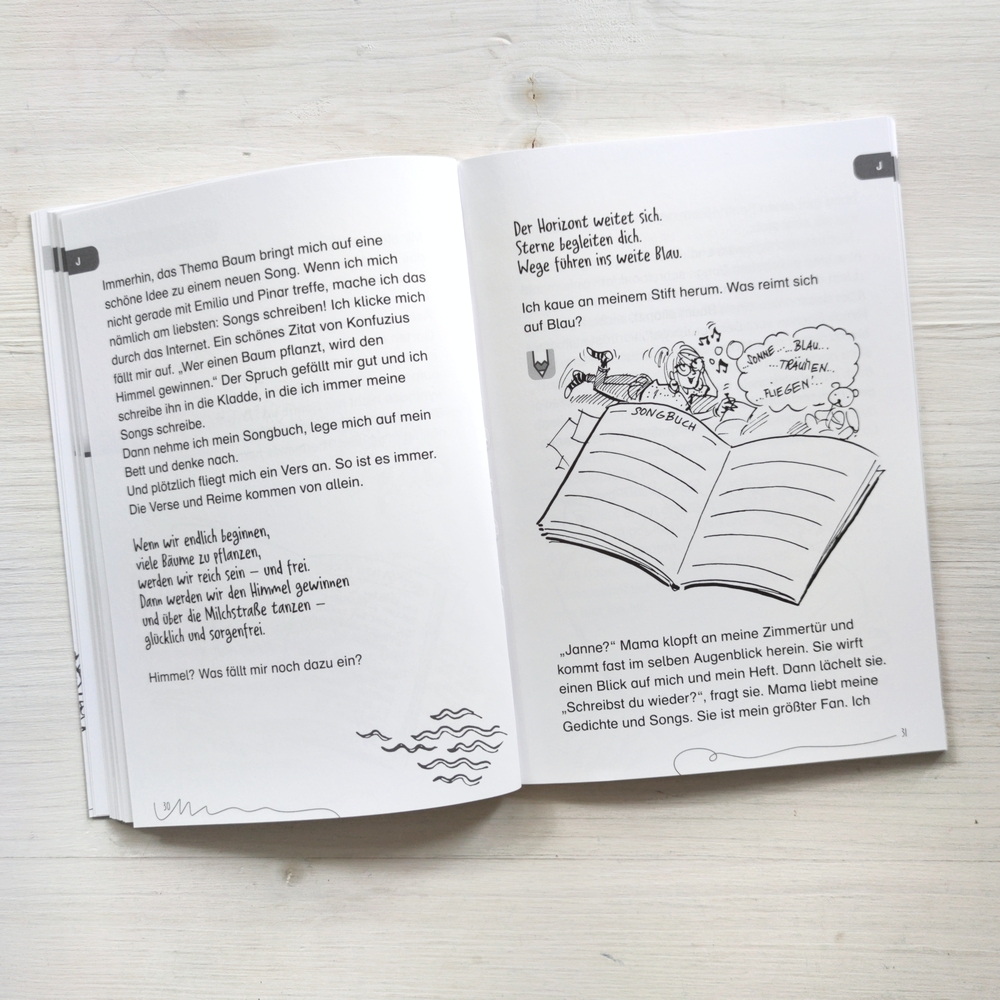 J
Immerhin, das Thema Baum bringt mich auf eine
schöne Idee zu einem neuen Song. Wenn ich mich
nicht gerade mit Emilia und Pinar treffe, mache ich das
nämlich am liebsten: Songs schreiben! Ich klicke mich
durch das Internet. Ein schönes Zitat von Konfuzius
fällt mir auf. „Wer einen Baum pflanzt, wird den
Himmel gewinnen.“ Der Spruch gefällt mir gut und ich
schreibe ihn in die Kladde, in die ich immer meine
Songs schreibe.
Dann nehme ich mein Songbuch, lege mich auf mein
Bett und denke nach.
Und plötzlich fliegt mich ein Vers an. So ist es immer.
Die Verse und Reime kommen von allein.
Wenn wir endlich beginnen,
viele Bäume zu pflanzen,
werden wir reich sein – und frei.
Dann werden wir den Himmel gewinnen
und über die Milchstraße tanzen –
glücklich und sorgenfrei.
Himmel? Was fällt mir noch dazu ein?
30
J
Der Horizont weitet sich.
Sterne begleiten dich.
Wege führen ins weite Blau.
Ich kaue an meinem Stift herum. Was reimt sich
auf Blau?
SONNE......BLAU...
...TRÄUMEN..
..FLIEGEN!..
SONGBUCH
„Janne?“ Mama klopft an meine Zimmertür und
kommt fast im selben Augenblick herein. Sie wirft
einen Blick auf mich und mein Heft. Dann lächelt sie.
„Schreibst du wieder?“, fragt sie. Mama liebt meine
Gedichte und Songs. Sie ist mein größter Fan. Ich
31